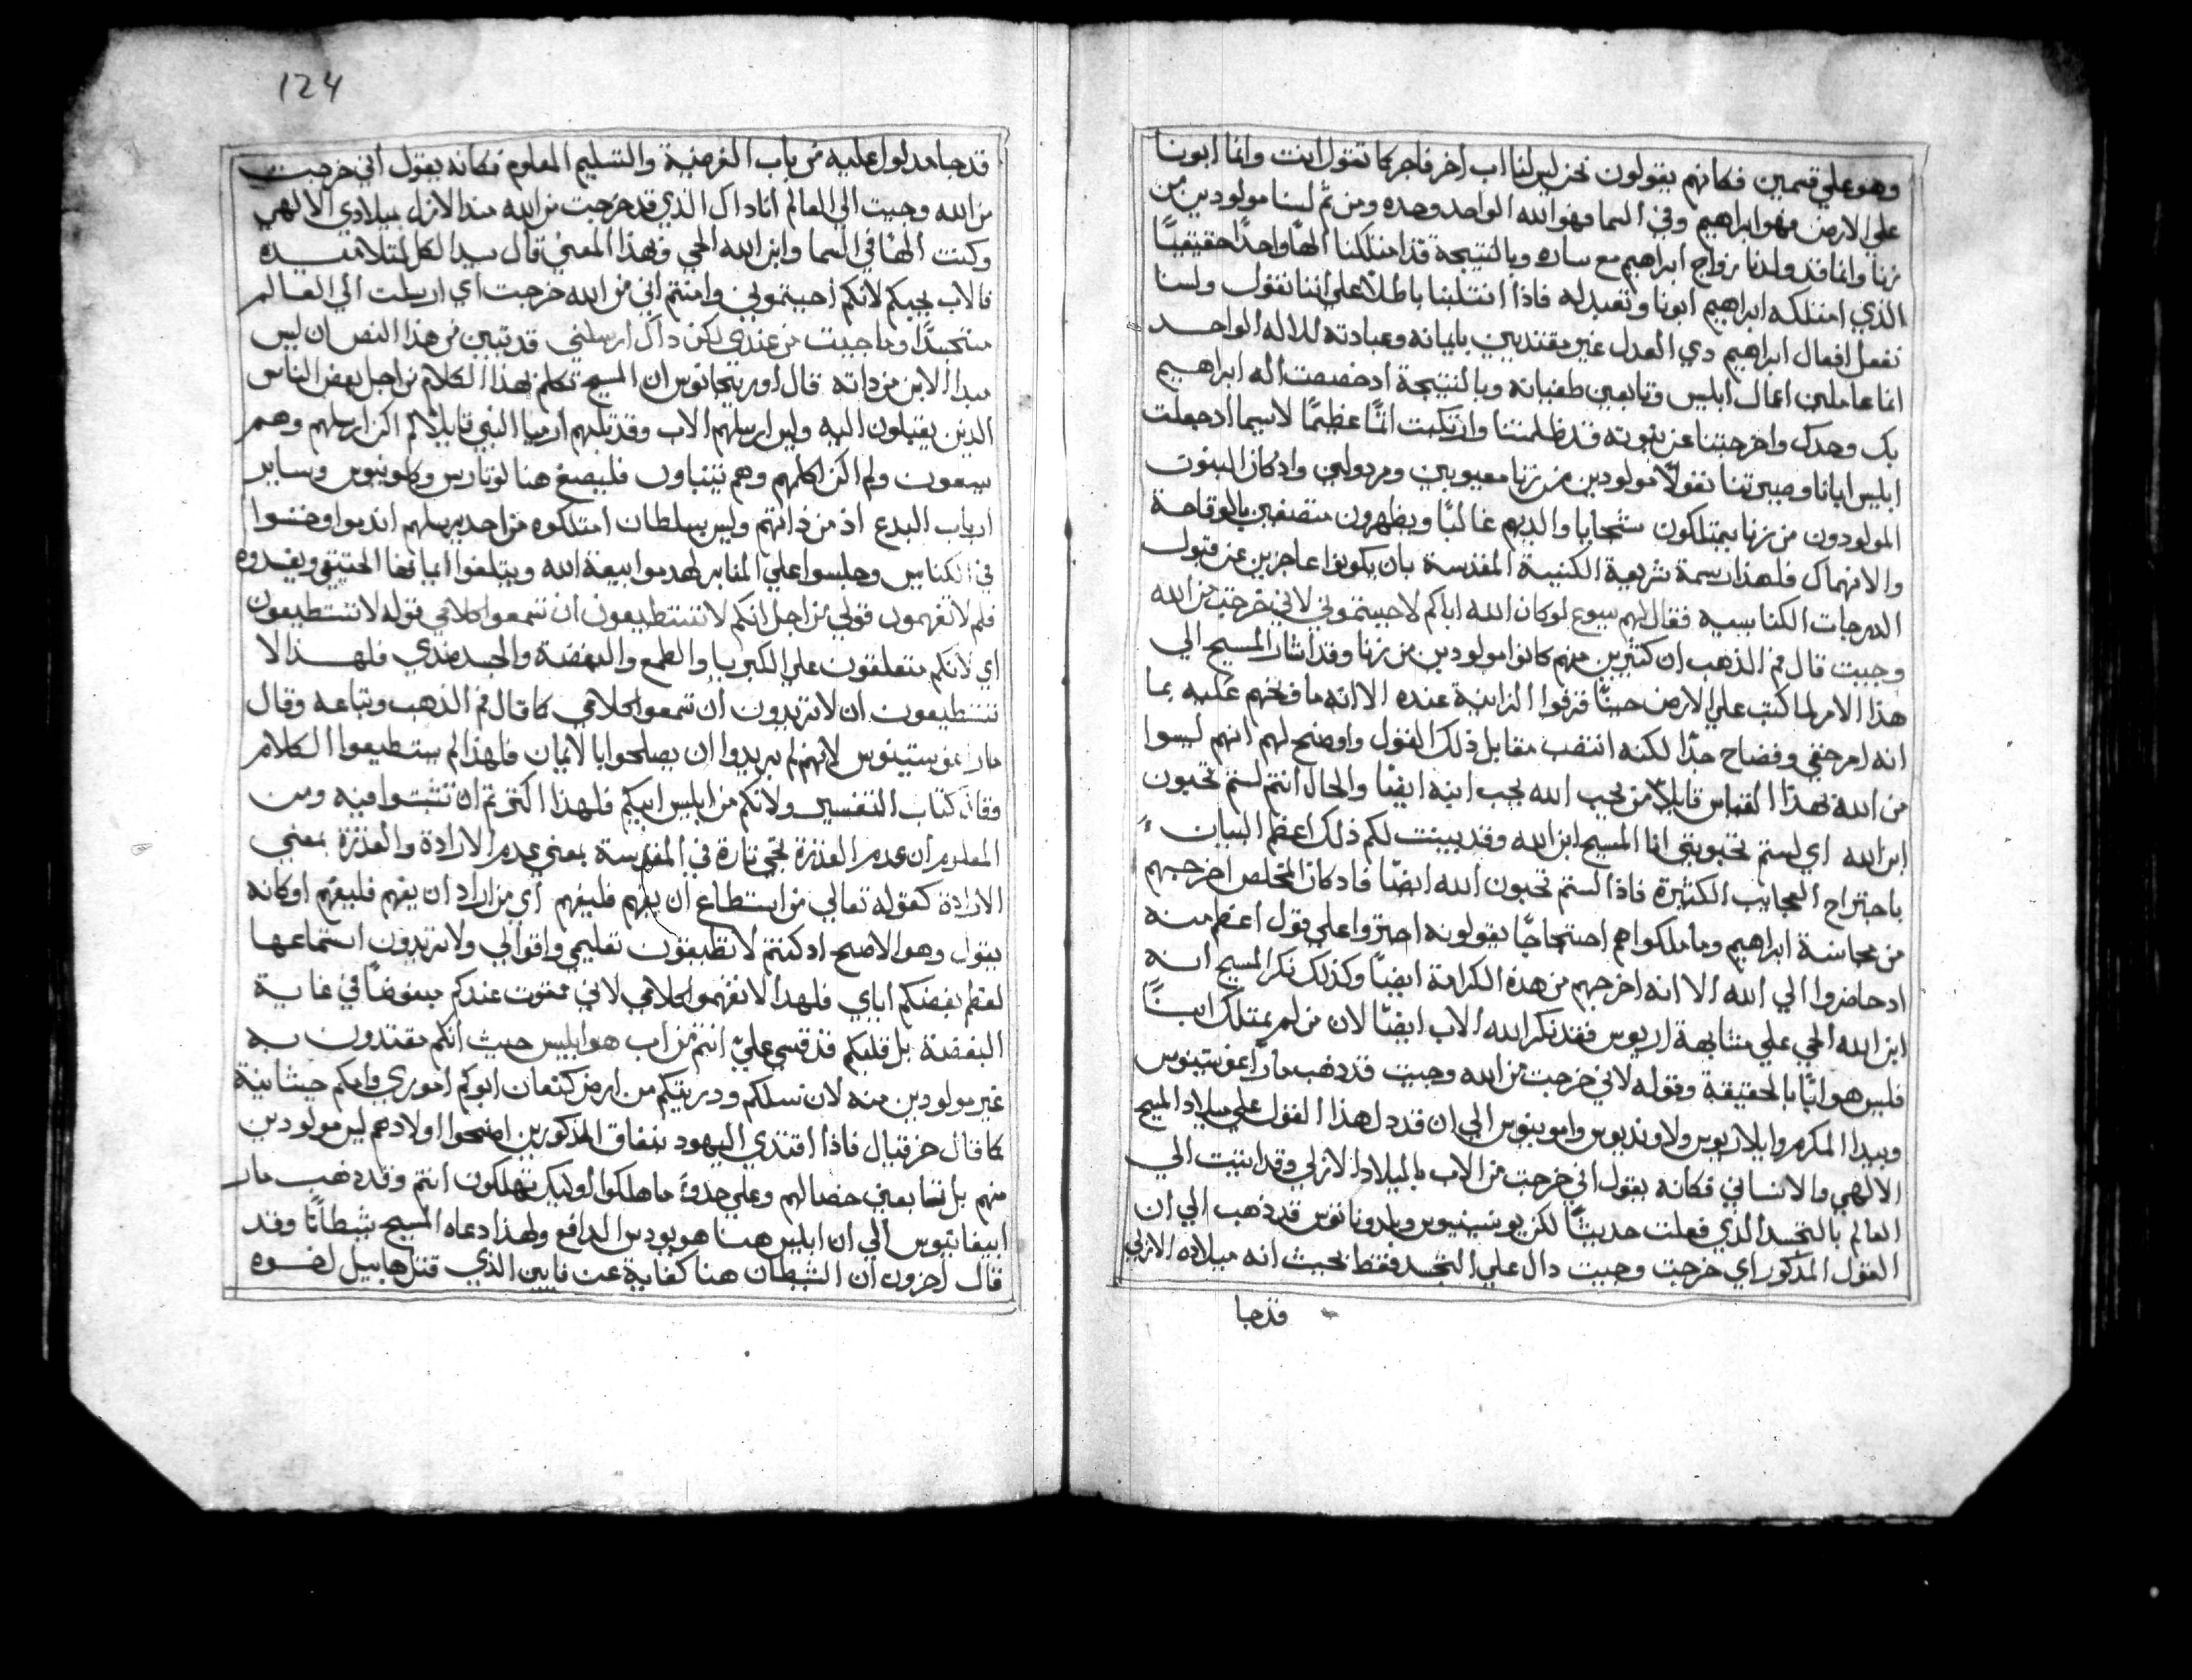 وهو علي قسمين فكانهم يقولون نحن ليس لنا اب اخر فاجر كما تقول انت وانما ابونا
علي الارض فهو ابراهيم وفي السما فهو الله الواحد وحده ومن ثم لسنا مولودين من
زنا وانما قد ولدنا بزواج ابراهيم مع ساره وبالنتيجة قد امتلكنا الهًا واحدًا حقيقيًا
الذي امتلكه ابراهيم ابونا ونعبد له فاذا انتلبنا باطلًا علي اننا نقول ولسنا
نفعل افعال ابراهيم دي العدل غير مقتديين بايمانه وعبادته للاله الواحد
انما عاملين اعمال ابليس وتابعين طغيانه وبالنتيجة ادخصصت اله ابراهيم
بك وحدك واخرجتنا عن بنوته قد ظلمتنا وارتكبت اثمًا عظيمًا لاسيما ادجعلت
ابليس ابانا وصيرتنا نغولًا مولودين من زنا معيوبين ومردولين وادكان البنون
المولودون من زنا يمتلكون سجايا والديهم غالبًا ويظهرون متصفين بالوقاحة
والانهماك فلهذا رسمة شريعة الكنيسة المقدسة بان يكونوا عاجزين عن قبول
الدرجات الكنايسيه فقال لهم يسوع لو كان الله اباكم لاحببتموني لاني خرجت من الله
وجيت قال فم الذهب ان كثيرين منهم كانوا مولودين من زنا وقد اشار المسيح الي
هذا الامر لما كتب علي الارض حينًا قرفوا الزانية عنده الا انه ما فخهم عليه بما
انه امر خفي وفضاح جدًا لكنه انتصب مقابل ذلك القول واوضح لهم انهم ليسوا
من الله بهذا القياس قايلًا من يحب الله يحب ابنه ايضًا والحال انتم لستم تحبون
ابن الله اي لستم تحبوني انا المسيح ابن الله وقد بينت لكم ذلك اعظم البيان
باجتراح العجايب الكثيرة فاذا لستم تحبون الله ايضًا فاد كان المخلص اخرجهم
من مجانسة ابراهيم وما ملكوا هم احتجاجًا يقولونه اجتروا علي قول اعظم منه
ادحاضروا الي الله الا انه اخرجهم من هذه الكرامة ايضًا وكذلك نكر المسيح انه
ابن الله الحي علي مشابهة اريوس فقد نكر الله الاب ايضًا لان من لم يمتلك ابنًا
فليس هو ابًا بالحقيقة وقوله لاني خرجت من الله وجيت قد ذهب مار اغوستينوس
وبيدا المكرم وايلاريوس ولاونديوس وامونيوس الي ان قد دل هذا القول علي ميلاد المسيح
الالهي والانساني فكانه يقول اني خرجت من الاب بالميلاد الازلي وقد اتيت الي
العالم بالتجسد الذي فعلت حديثًا لكن يونسينيوس ومادوناتوس قد ذهب الي ان
القول المذكور اي خرجت وجيت دال علي التجسد فقط بحيث انه ميلاده الازلي
قدجا
124
قدجا مدلولا عليه من باب الفرضية والتسليم المعلوم فكانه يقول اني خرجت
من الله وجيت الي العالم انا داك الذي قد خرجت من الله منذ الازل بميلادي الالهي
وكنت الهًا في السما وابن الله الحي وبهذا المعني قال سيد الكل لتلاميده
فالاب يحبكم لانكم احببتموني وامنتم اني من الله خرجت اي ارسلت الي العالم
متجسدًا وما جيت من عندي لكن داك ارسلني قد تبين من هذا النص ان ليس
مبدا الابن من داته قال اوريجانوس ان المسيح تكلم بهذا الكلام من اجل بعض الناس
الذين يقبلون اليه وليس ارسلهم الاب وقد تلبهم ارميا النبي قايلًا لم اكن ارسلهم وهم
يسعون ولم اكن اكلمهم وهم يتنباون فليصغ هنا لوتارس وكلوينوس وساير
ارباب البدع اذ من ذاتهم وليس بسلطان امتلكوه من احد يرسلهم انذبوا وخشوا
في الكنايس وجلسوا علي المنابر لهدموا بيعة الله ويتلفوا ايمانها الحقيقي ويفسدوه
فلم لا تفهمون قولي من اجل انكم لا تستطيعون ان تسمعوا كلامي قوله لا تستطيعون
اي لانكم متعلقون علي الكبريا والطمع والبغضة والحسد ضدي فلهذا لا
تستطيعون ان لا تريدون ان تسمعوا كلامي كما قال فم الذهب وتباعه وقال
مار اغوستينوس لانهم لم يريدوا ان يصلحوا بالايمان فلهذا لم يستطيعوا الكلام
وقال كتاب التفسير ولانكم من ابليس ابيكم فلهذا اكثرتم ان تثبتوا فيه ومن
المعلوم ان عدم القدرة تجي تارة في المقدسة بمعني عدم الارادة والقدرة بمعني
الارادة كقوله تعالي من استطاع ان يفهم فليفهم اي من اراد ان يفهم فليفهم اوكانه
يقول وهو الاصح ادكنتم لا تطيقون تعليمي واقوالي ولا تريدون استماعها
لعظم بغضكم اياي فلهدا لا تفهموا كلامي لاني ممقوت عندكم مبغوضًا في غاية
البغضة بل قلبكم قد قسي علي انتم من اب هو ابليس حيث انكم مقتدون به
غير مولودين منه لان نسلكم ودريتكم من ارض كنعان ابوكم اموري وامكم حيثانية
كما قال حزقيال فاذا اقتدي اليهود بنفاق المذكورين اضحوا اولادهم ليس مولودين
منهم بل تابعين خصالهم وعلي حدو ما هلكوا اوليك تهلكون انتم وقد ذهب مار
ابيفانيوس الي ان ابليس هنا هو يودس الدافع ولهذا دعاه المسيح شيطانًا وقد
قال اخرون ان الشيطان هنا كفاية عن قايين الذي قتل هابيل اخوه